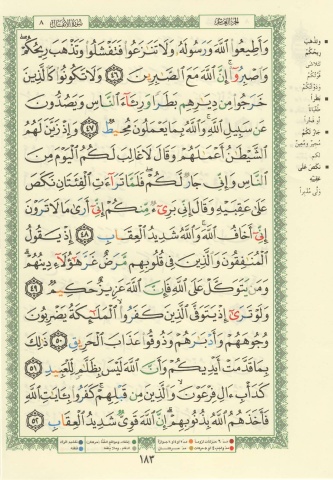 الجزء العاشر سورة الأنفال ٨
وَأَطِيعُوا۟ ٱللَّهَ وَرَسُولَهُۥ وَلَا تَنَـٰزَعُوا۟ فَتَفْشَلُوا۟ وَتَذْهَبَ رِيحُكُمْ
وَٱصْبِرُوٓا۟ إِنَّ ٱللَّهَ مَعَ ٱلصَّـٰبِرِينَ ٤٦ وَلَا تَكُونُوا۟ كَٱلَّذِينَ
خَرَجُوا۟ مِن دِيَـٰرِهِم بَطَرًا وَرِئَآءَ ٱلنَّاسِ وَيَصُدُّونَ
عَن سَبِيلِ ٱللَّهِ وَٱللَّهُ بِمَا يَعْمَلُونَ مُحِيطٌ ٤٧ وَإِذْ زَيَّنَ لَهُمُ
ٱلشَّيْطَـٰنُ أَعْمَـٰلَهُمْ وَقَالَ لَا غَالِبَ لَكُمُ ٱلْيَوْمَ مِنَ
ٱلنَّاسِ وَإِنِّى جَارٌ لَّكُمْ فَلَمَّا تَرَآءَتِ ٱلْفِئَتَانِ نَكَصَ
عَلَىٰ عَقِبَيْهِ وَقَالَ إِنِّى بَرِىٓءٌ مِّنكُمْ إِنِّىٓ أَرَىٰ مَا لَا تَرَوْنَ
إِنِّىٓ أَخَافُ ٱللَّهَ وَٱللَّهُ شَدِيدُ ٱلْعِقَابِ ٤٨ إِذْ يَقُولُ
ٱلْمُنَـٰفِقُونَ وَٱلَّذِينَ فِى قُلُوبِهِم مَّرَضٌ غَرَّ هَـٰٓؤُلَآءِ دِينُهُمْ
وَمَن يَتَوَكَّلْ عَلَى ٱللَّهِ فَإِنَّ ٱللَّهَ عَزِيزٌ حَكِيمٌ ٤٩
وَلَوْ تَرَىٰٓ إِذْ يَتَوَفَّى ٱلَّذِينَ كَفَرُوا۟ ٱلْمَلَـٰٓئِكَةُ يَضْرِبُونَ
وُجُوهَهُمْ وَأَدْبَـٰرَهُمْ وَذُوقُوا۟ عَذَابَ ٱلْحَرِيقِ ٥٠ ذَٰلِكَ
بِمَا قَدَّمَتْ أَيْدِيكُمْ وَأَنَّ ٱللَّهَ لَيْسَ بِظَلَّـٰمٍ لِّلْعَبِيدِ ٥١
كَدَأْبِ ءَالِ فِرْعَوْنَ وَٱلَّذِينَ مِن قَبْلِهِمْ كَفَرُوا۟ بِـَٔايَـٰتِ ٱللَّهِ
فَأَخَذَهُمُ ٱللَّهُ بِذُنُوبِهِمْ إِنَّ ٱللَّهَ قَوِىٌّ شَدِيدُ ٱلْعِقَابِ ٥٢
١٨٣